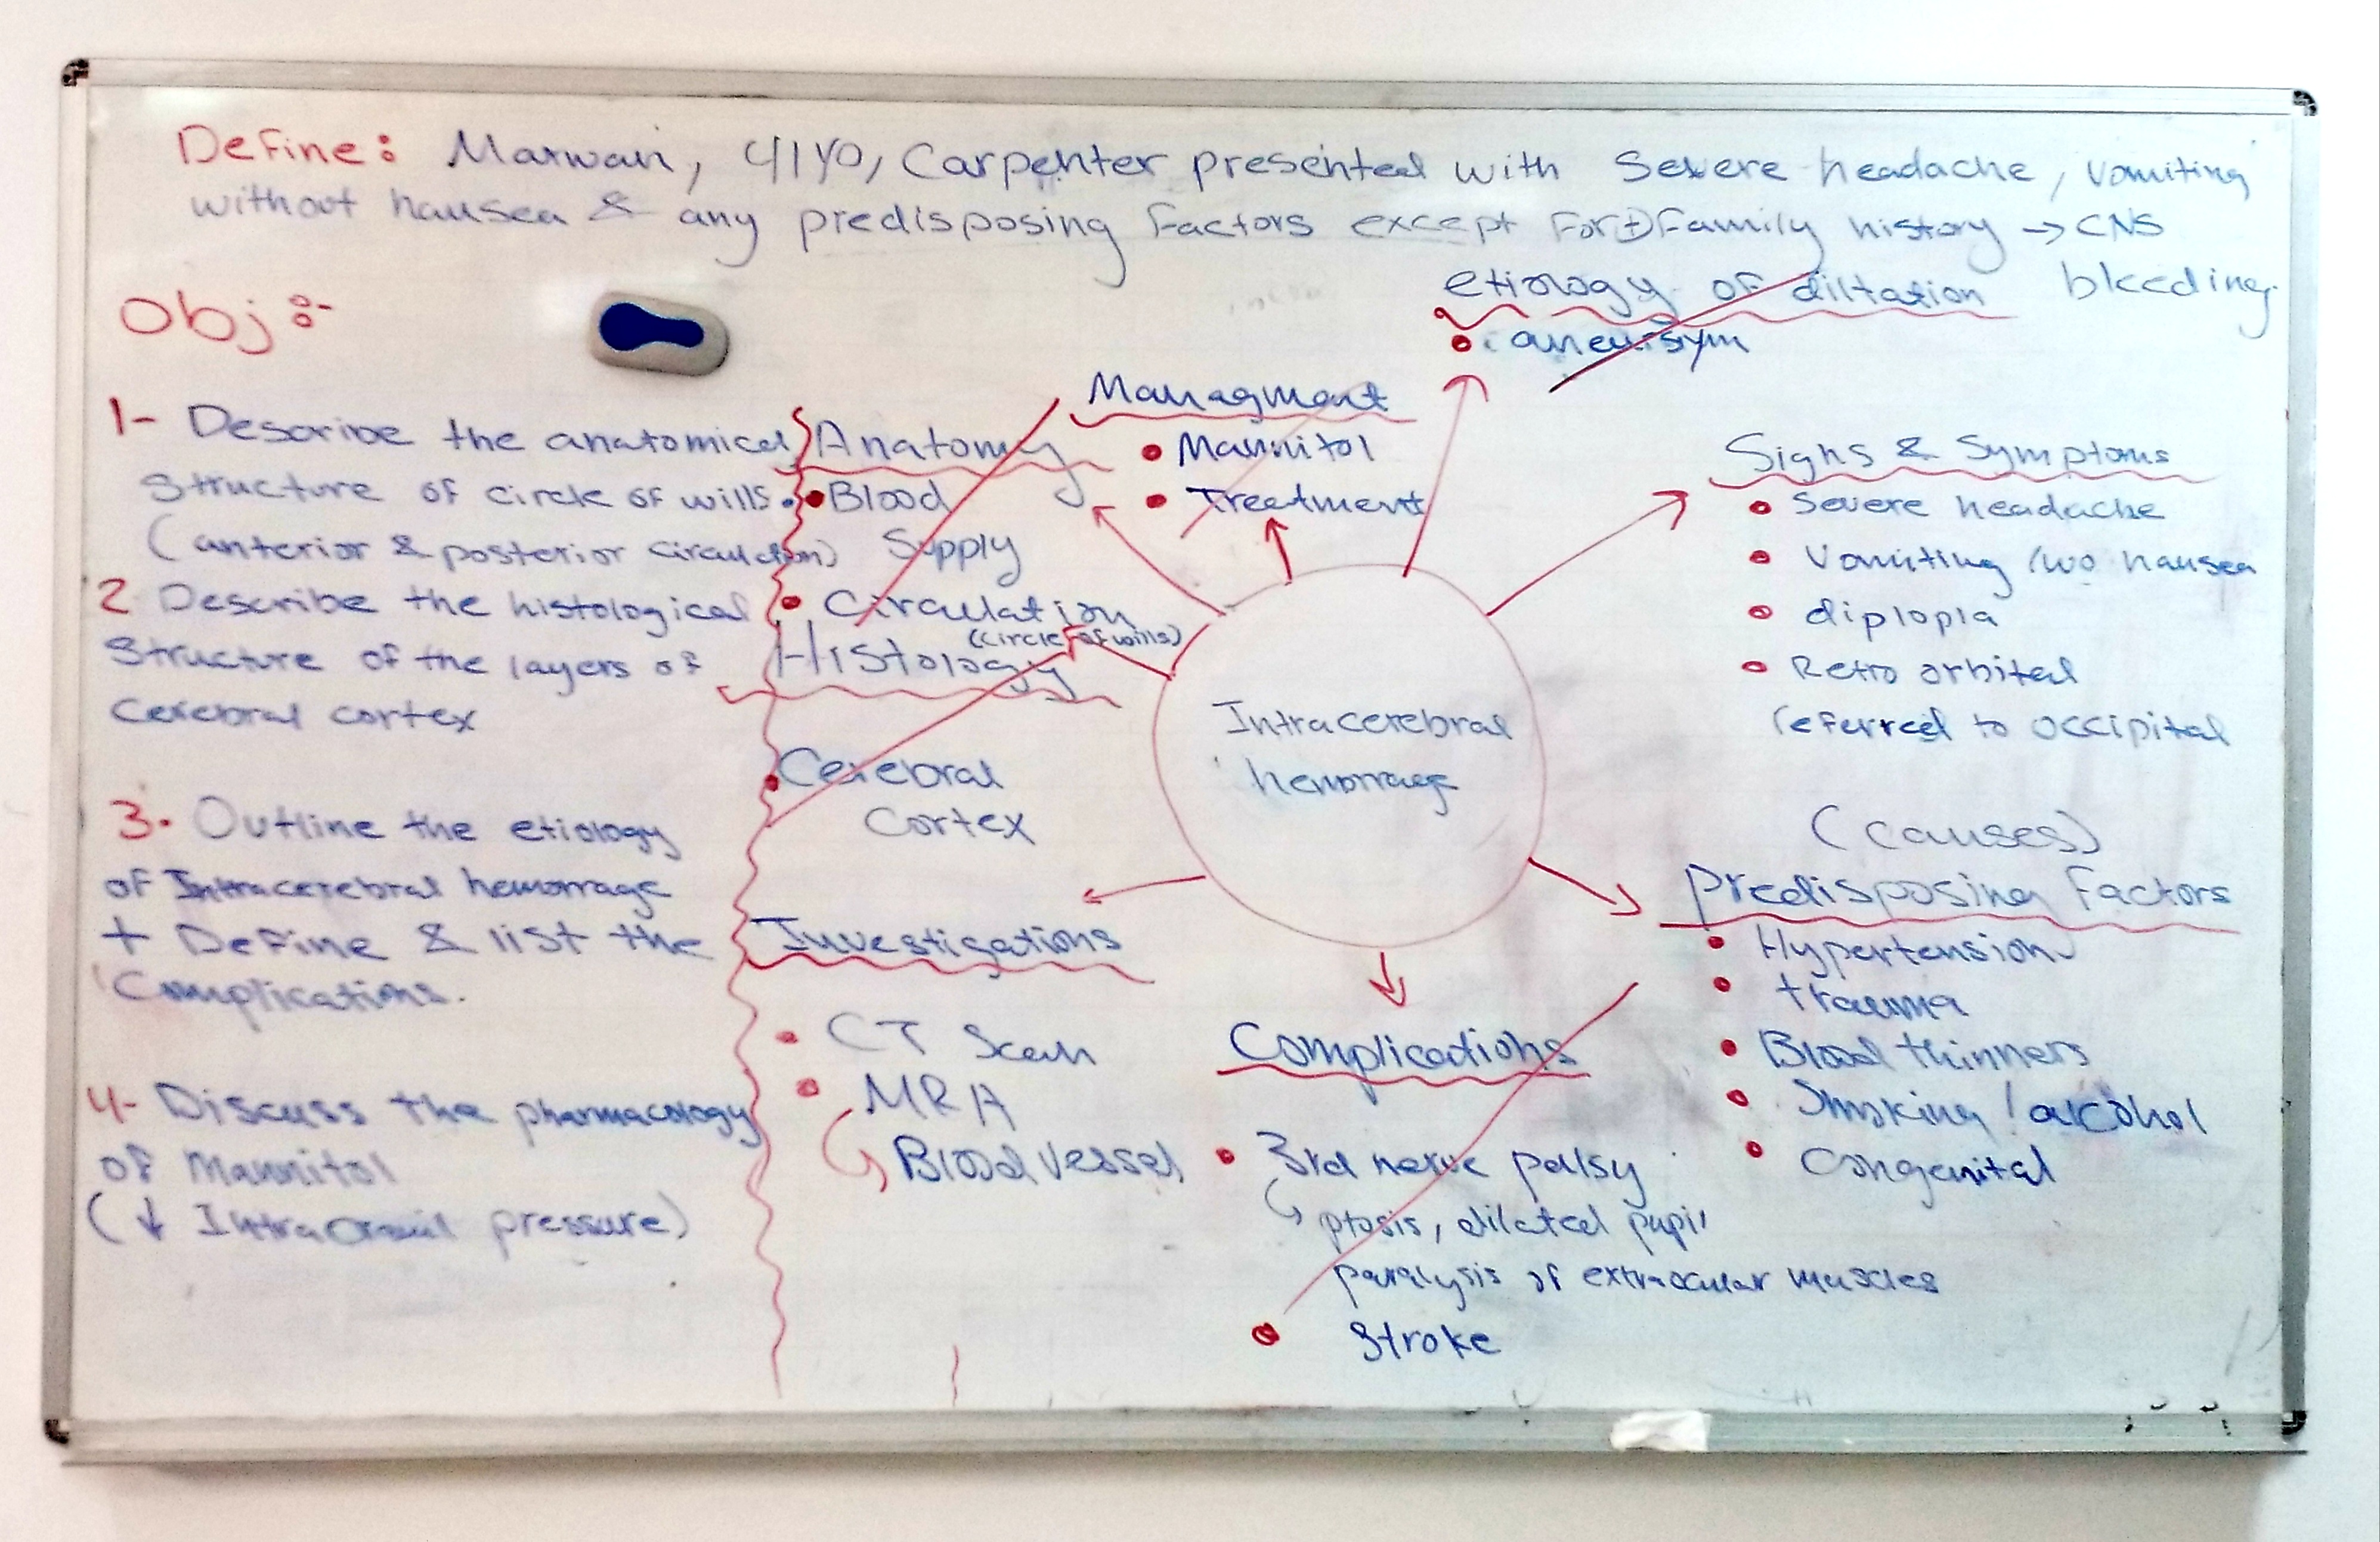 Define: Marwan, 41YO, Carpenter presented with Severe headache, vomiting
without nausea & any predisposing Factors except For (+) Family history → CNS
bleeding.
Obj:-
1- Describe the anatomical
structure of circle of wills.
(anterior & posterior circulation)
2 Describe the histological
structure of the layers of
Cerebral cortex
3- Outline the etiology
of Intracerebral hemorrage
+ Define & list the
Complications.
4- Discuss the pharmacology
of Mannitol
(↓ Intracranial pressure)
Anatomy
• Blood
Supply
• Circulation
(circle of wills)
Histology
• Cerebral
Cortex
Investigations
• CT Scan
• MRA
Blood vessel
Managment
• Mannitol
• Treatment
etiology of diltation
• aneurisym
Intracerebral
hemorrage
Signs & Symptoms
• Severe headache
• Vomiting /wo nausea
• diplopia
• Retro orbital
referred to occipital
(causes)
Predisposing Factors
• Hypertension
• trauma
• Blood thinners
• Smoking / alcohol
• Congenital
Complications
• 3rd nerve palsy
ptosis, dilated pupil
paralysis of extraocular muscles
• Stroke